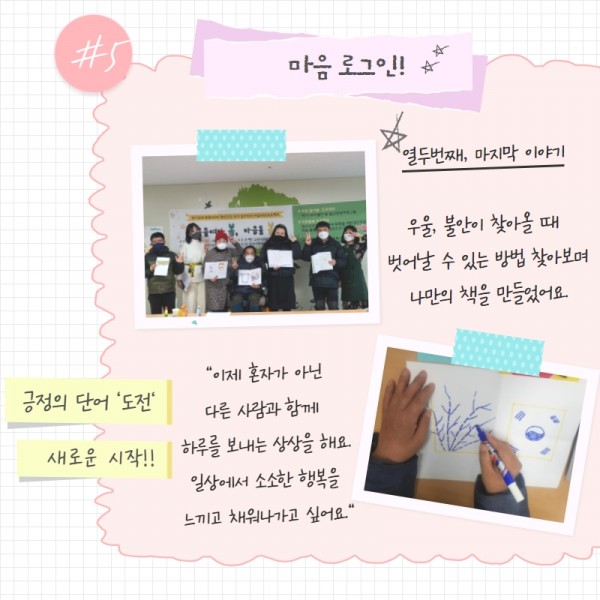 #5
마음 로그인!
열두번째, 마지막 이야기
우울, 불안이 찾아올 때
벗어날 수 있는 방법 찾아보며
나만의 책을 만들었어요.
긍정의 단어 '도전'
새로운 시작!!
"이제 혼자가 아닌
다른 사람과 함께
하루를 보내는 상상을 해요.
일상에서 소소한 행복을
느끼고 채워나가고 싶어요."